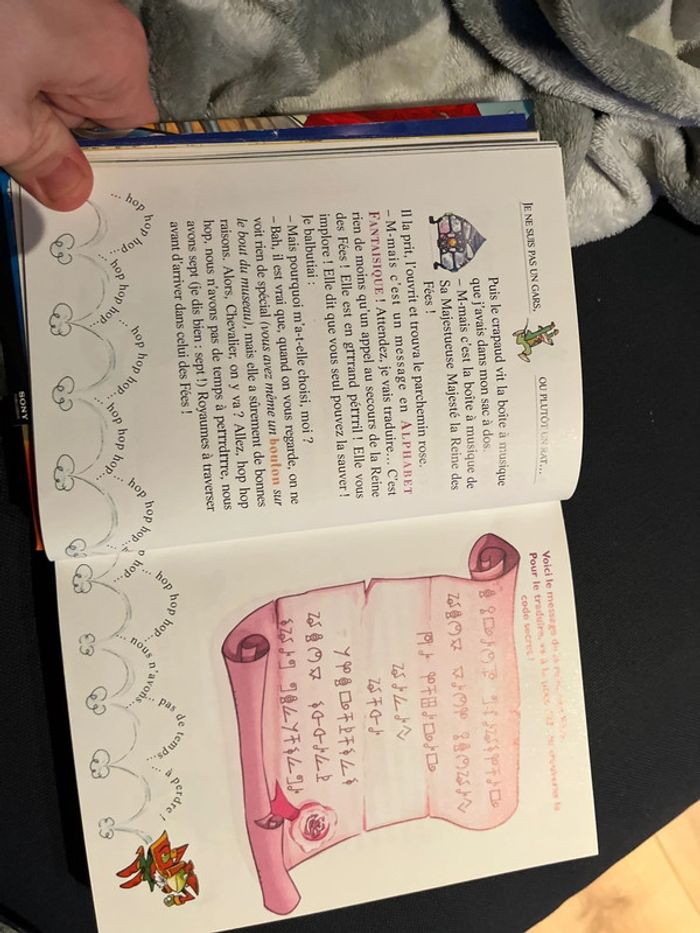 JE NE SUIS PAS UN GARS,
OU PLUTÔT UN RAT...
Puis le crapaud vit la boîte à musique
que j'avais dans mon sac à dos.
– M-mais c'est la boîte à musique de
Sa Majestueuse Majesté la Reine des
Fées !
Il la prit, l'ouvrit et trouva le parchemin rose.
– M-mais c'est un message en ALPHABET
FANTAISIQUE ! Attendez, je vais traduire... C'est
rien de moins qu'un appel au secours de la Reine
des Fées ! Elle est en grrrand pérrril ! Elle vous
implore ! Elle dit que vous seul pouvez la sauver !
Je balbutiai :
– Mais pourquoi m'a-t-elle choisi, moi ?
– Bah, il est vrai que, quand on vous regarde, on ne
voit rien de spécial (vous avez même un bouton sur
le bout du museau), mais elle a sûrement de bonnes
raisons. Alors, Chevalier, on y va ? Allez, hop hop
hop, nous n'avons pas de temps à perrrdrrre, nous
avons sept (je dis bien : sept !) Royaumes à traverser
avant d'arriver dans celui des Fées !
... hop hop hop ... hop hop hop... hop hop hop... hop hop hop... hop hop hop... hop hop hop... nous n'avons... pas de temps... à perdre !
Voici le message de la
Pour le traduire, va à la
code secret !
SONY